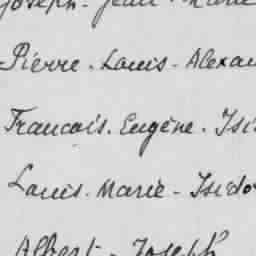 Joseph - Jean - Marie
Pierre - Louis - Alexan
Francois. Eugène. Isi
Louis - Marie - Isido
Albert - Joseph